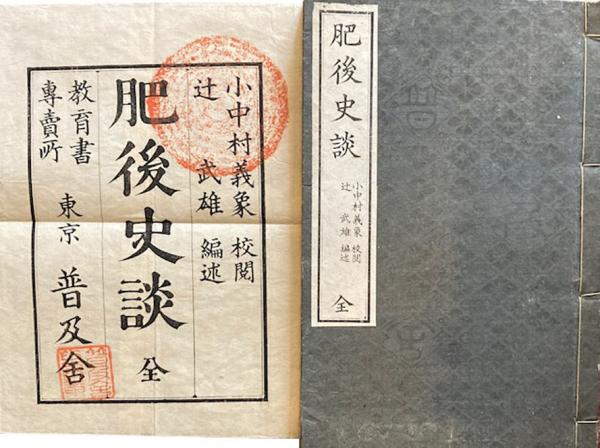 小中村義象 校閲
辻 武雄 編述
肥後史談 全
教育書
專賣所
東京 普及舎
肥後史談
小中村義象 校閲
辻 武雄 編述
全